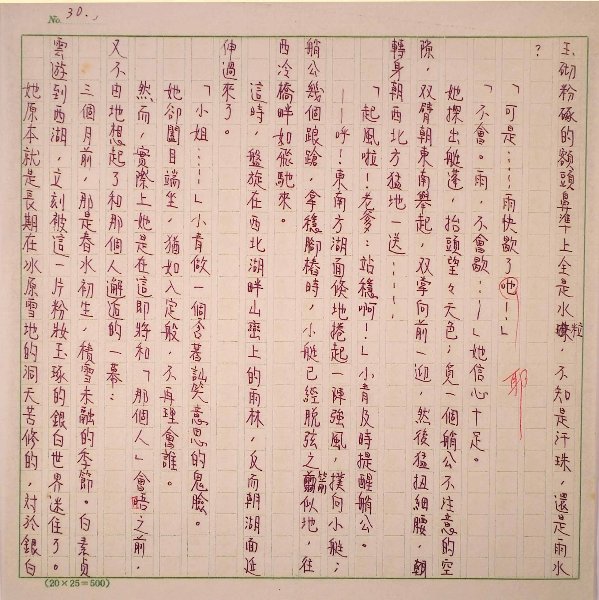 No. 30.,
玉砌粉琢的額頭鼻準上全是水粒，不知是汗珠，還是雨水
？
「可是……雨快歇了吔！」
耶
「不會。雨，不會歇…！」她信心十足。
她探出艇蓬，抬頭望々天色；覓一個艄公不注意的空
隙，双臂朝東南舉起，双掌向前一迎，然後猛扭細腰，朝
轉身朝西北方猛地一送……
「起風啦！老爹：站穩啊！」小青及時提醒艄公。
——呼！東南方湖面倏地捲起一陣強風，撲向小艇；
艄公幾個踉蹌，拿穩腳樁時，小艇已經脫弦之箭似地，往
西冷橋畔如飛馳來。
這時，盤旋在西北湖畔山巒上的雨林，反而朝湖面近
伸過來了。
「小姐…！」小青做一個含著訕笑意思的鬼臉。
她卻闔目端坐，猶如入定般，不再理會誰。
然而，實際上她是在這即將和「那個人」會晤之前，
又不由地想起了和那個人邂逅的一幕：
三個月前，那是春水初生，積雪未融的季節。白素貞
雲遊到西湖，立刻被這一片粉妝玉琢的銀白世界迷住了。
她原本就是長期在冰原雪地的洞天苦修的，對於銀白
(20×25=500)